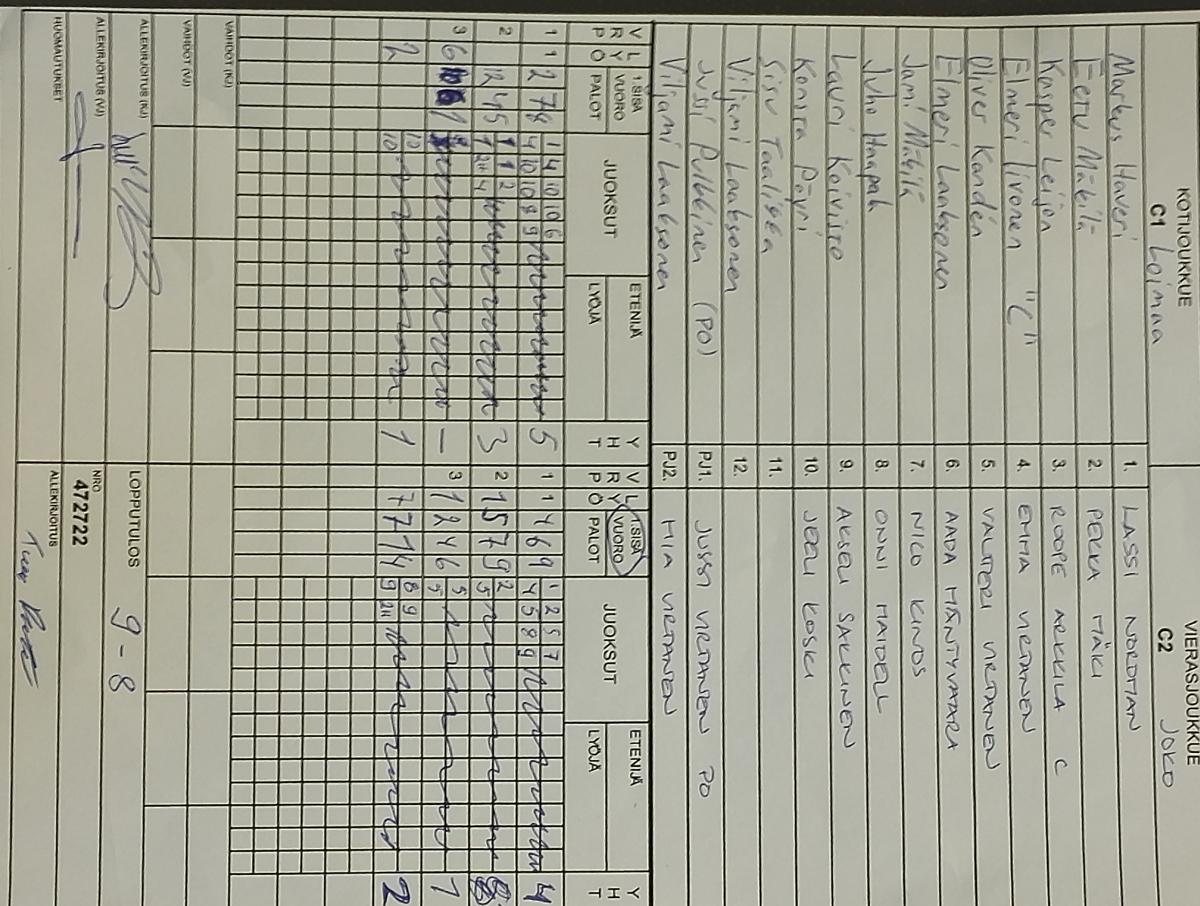 KOTIJOUKKUE
C1 Loimaa
VIERASJOUKKUE
C2 JOKO
Markus Haveri
1. LASSI NORDMAN
Eetu Mäkilä
2. PEKKA MÄKI
Kasper Leijon
3. ROOPE ARKKILA C
Elmeri Iivonen "C"
4. EMMA VIRTANEN
Oliver Kandén
5. VALTTERI VIRTANEN
Elmeri Laaksonen
6. AADA MÄNTYVAARA
Jami Mäkilä
7. NICO KINOS
Juho Haapala
8. ONNI HAIDELL
Lauri Koivisto
9. AKSELI SAKKINEN
Konsta Pöyri
10. JEELI KOSKI
Sisu Taaliska
11.
Viljami Laaksonen
12.
Jussi Pulkkinen (PO)
PJ1. JUSSI VIRTANEN PO
Viljami Laaksonen
PJ2. MIA VIRTANEN
V R P
L Y Ö
1.SISÄ VUORO
PALOT
JUOKSUT
ETENIJÄ
LYÖJÄ
Y H T
V R P
L Y Ö
1.SISÄ VUORO
PALOT
JUOKSUT
ETENIJÄ
LYÖJÄ
Y H T
1 1 2 7 8
1 4 10 10 6
4 10 10 8 9
5
1 1 4 6 9
1 2 5 7
4 5 8 9
4
2 12 4 5
1 1 2
1 2H 4
3
2 1 5 7 9
2
5
3 6
–
3 1 2 4 6
5
5
1
2
10
10
1
7 7 1 4
8 9
9 2H 10
2
VAIHDOT (KJ)
VAIHDOT (VJ)
ALLEKIRJOITUS (KJ)
LOPPUTULOS 9 - 8
ALLEKIRJOITUS (VJ)
NRO
472722
HUOMAUTUKSET
ALLEKIRJOITUS